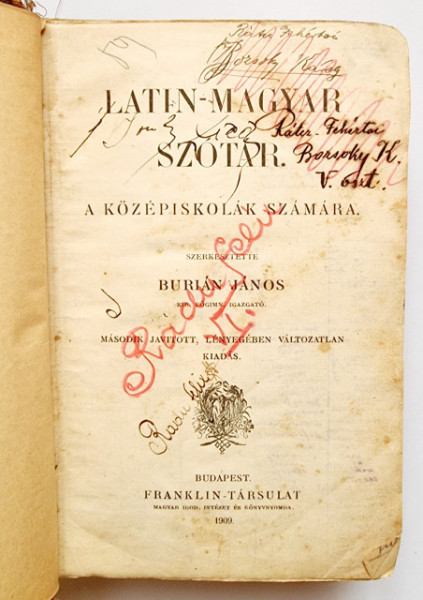 LATIN-MAGYAR
SZÓTÁR.
Borsoky K.
V. oszt.
A KÖZÉPISKOLÁK SZÁMÁRA.
SZERKESZTETTE
BURIÁN JÁNOS
KIR. FŐGIMN. IGAZGATÓ.
VI.
MÁSODIK JAVITOTT, LÉNYEGÉBEN VÁLTOZATLAN
KIADÁS.
BUDAPEST.
FRANKLIN-TÁRSULAT
MAGYAR IROD. INTÉZET ÉS KÖNYVNYOMDA.
1909.